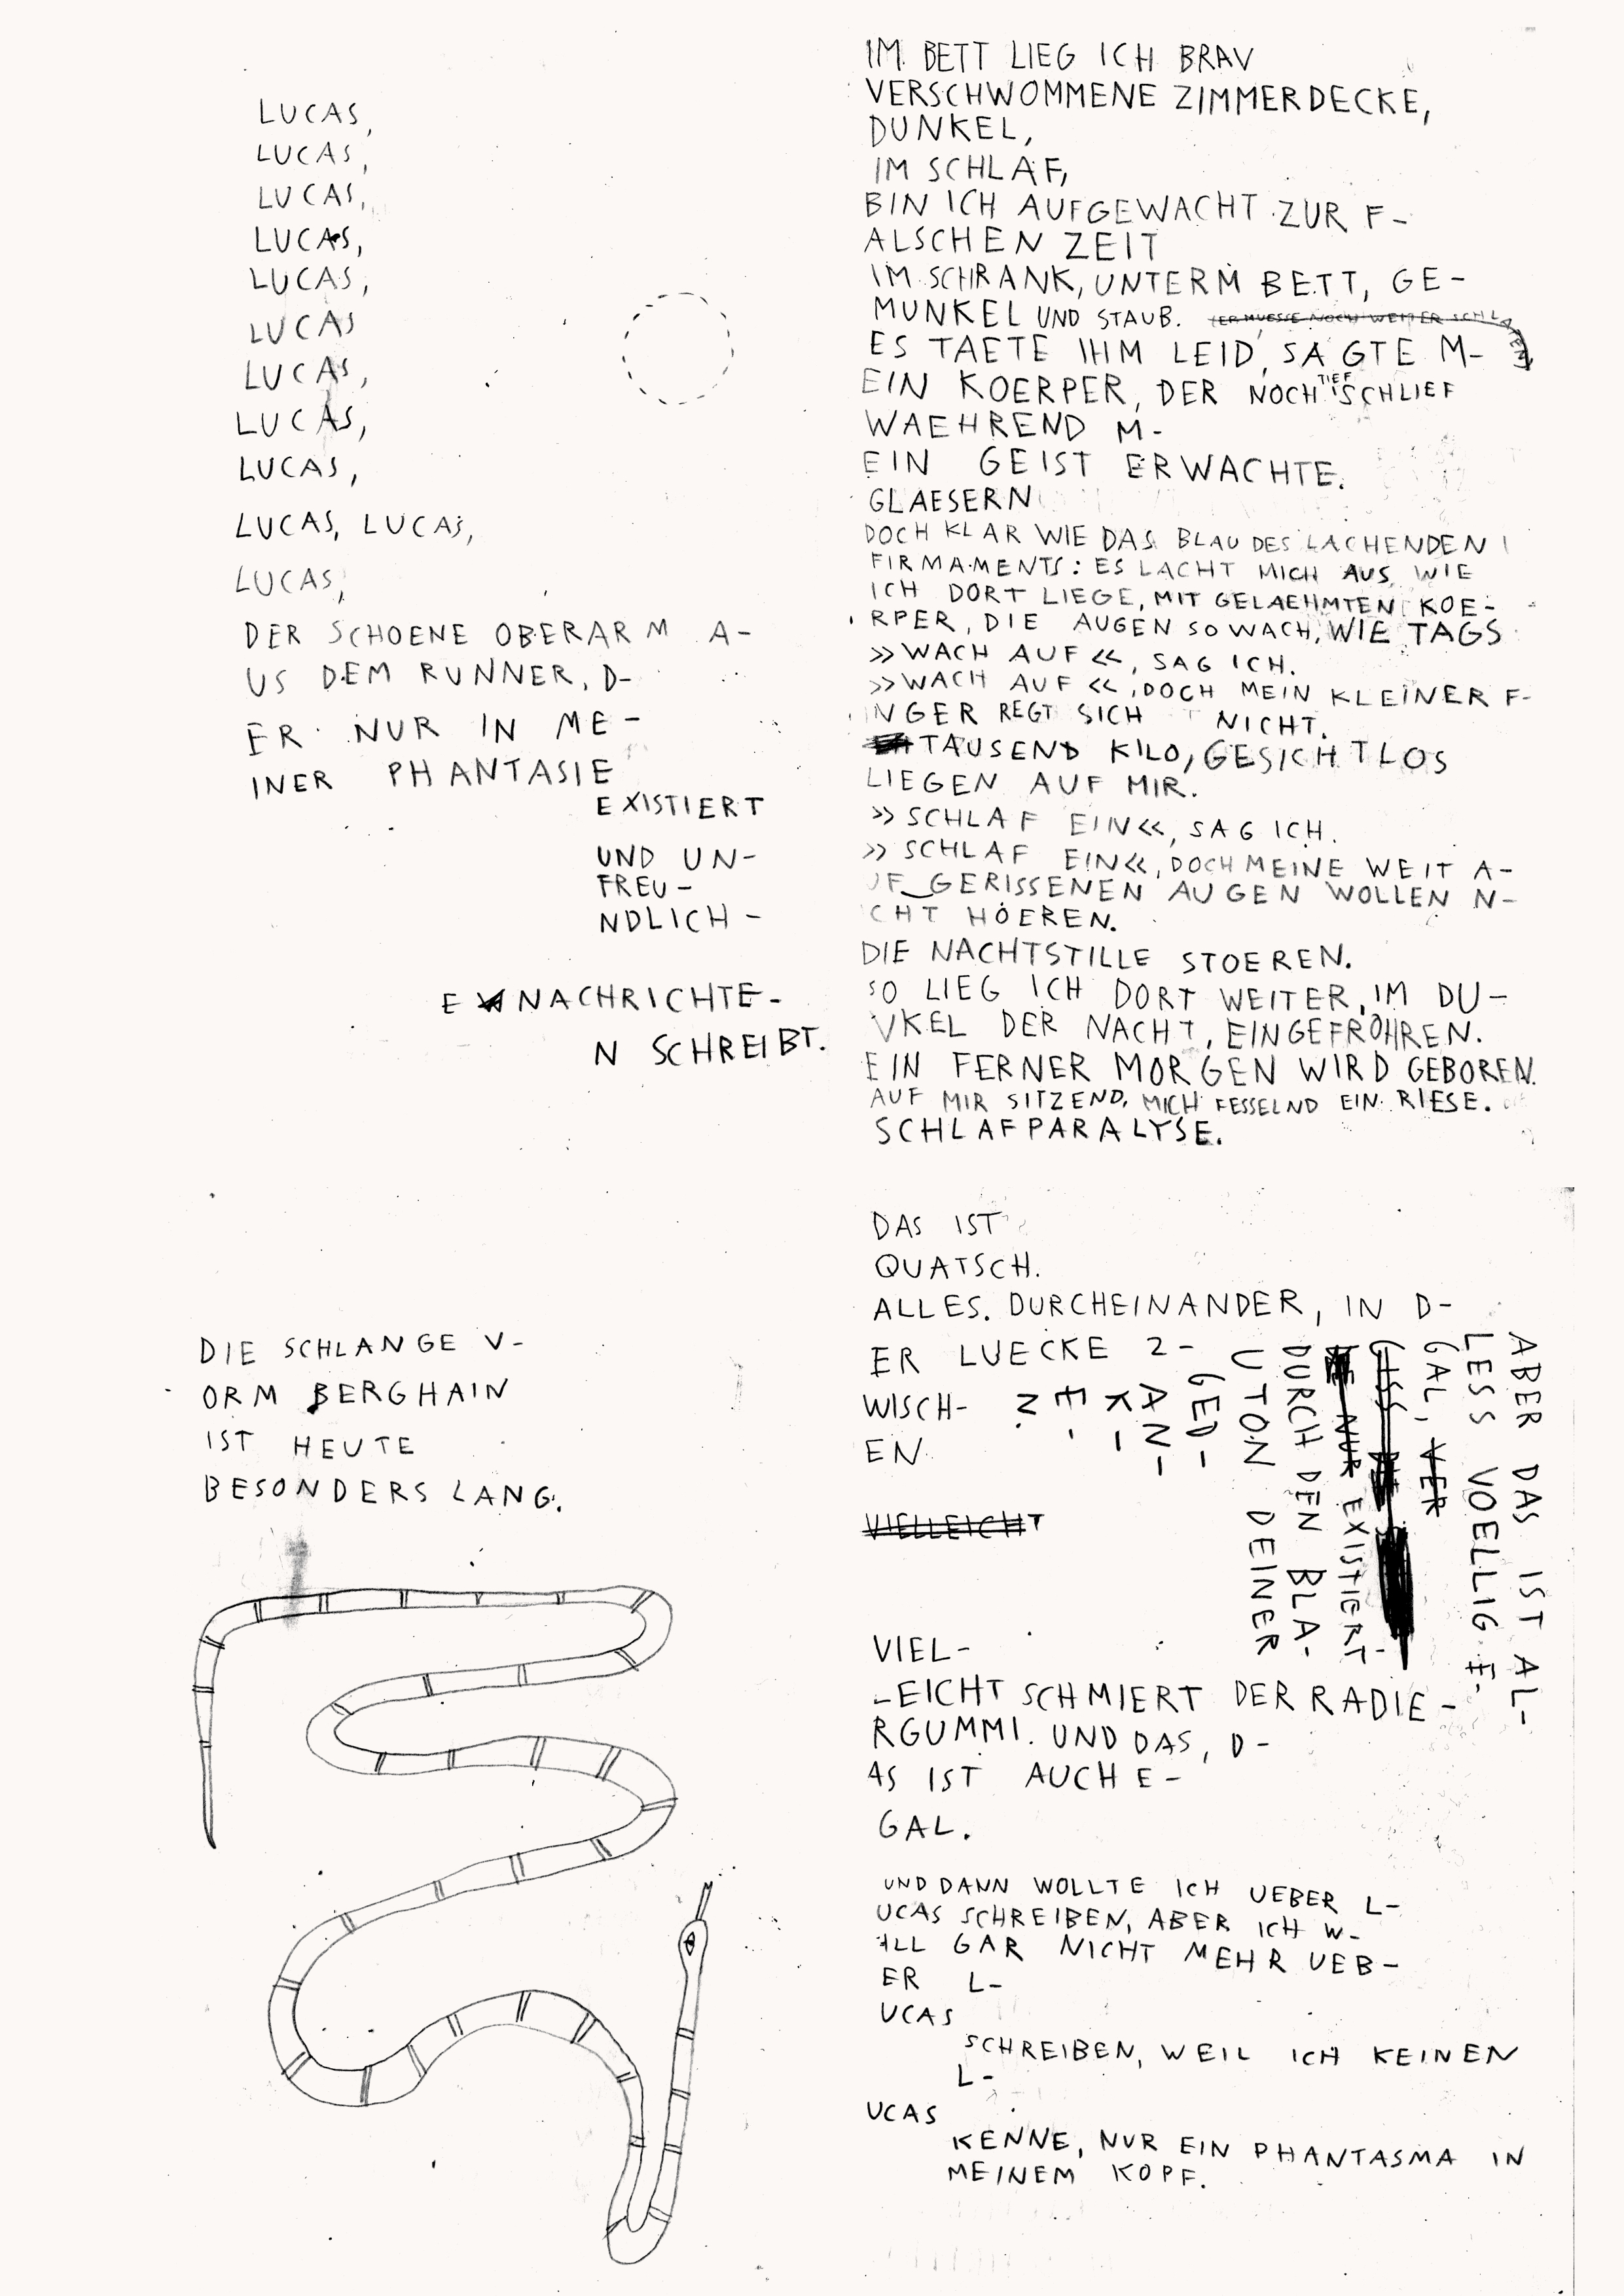 LUCAS,
LUCAS,
LUCAS,
LUCAS,
LUCAS,
LUCAS
LUCAS,
LUCAS,
LUCAS,
LUCAS, LUCAS,
LUCAS,
DER SCHOENE OBERARM A-
US DEM RUNNER, D-
ER NUR IN ME-
INER PHANTASIE
EXISTIERT
UND UN-
FREU-
NDLICH-
E NACHRICHTE-
N SCHREIBT.
IM BETT LIEG ICH BRAV
VERSCHWOMMENE ZIMMERDECKE,
DUNKEL,
IM SCHLAF,
BIN ICH AUFGEWACHT ZUR F-
ALSCHEN ZEIT
IM SCHRANK, UNTERM BETT, GE-
MUNKEL UND STAUB. (ER MUESSE NOCH WEITER SCHLAFEN)
ES TAETE IHM LEID, SAGTE M-
EIN KOERPER, DER NOCH TIEF SCHLIEF
WAEHREND M-
EIN GEIST ERWACHTE.
GLAESERN
DOCH KLAR WIE DAS BLAU DES LACHENDEN
FIRMAMENTS: ES LACHT MICH AUS, WIE
ICH DORT LIEGE, MIT GELAEHMTEN KOE-
RPER, DIE AUGEN SO WACH, WIE TAGS
»WACH AUF«, SAG ICH.
»WACH AUF«, DOCH MEIN KLEINER F-
INGER REGT SICH NICHT.
TAUSEND KILO, GESICHTLOS
LIEGEN AUF MIR.
»SCHLAF EIN«, SAG ICH.
»SCHLAF EIN«, DOCH MEINE WEIT A-
UF_GERISSENEN AUGEN WOLLEN N-
ICHT HOEREN.
DIE NACHTSTILLE STOEREN.
SO LIEG ICH DORT WEITER, IM DU-
NKEL DER NACHT, EINGEFROHREN.
EIN FERNER MORGEN WIRD GEBOREN.
AUF MIR SITZEND, MICH FESSELND EIN RIESE.
SCHLAFPARALYSE.
DIE SCHLANGE V-
ORM BERGHAIN
IST HEUTE
BESONDERS LANG.
DAS IST
QUATSCH.
ALLES. DURCHEINANDER, IN D-
ER LUECKE Z-
WISCH-
EN
VIELLEICHT
ABER DAS IST AL-
LES VOELLIG E-
GAL, VER
NUR EXISTIERT
DURCH DEN BLA-
UTON DEINER
GED-
AN-
K-
E-
N.
VIEL-
LEICHT SCHMIERT DER RADIE-
RGUMMI. UND DAS, D-
AS IST AUCH E-
GAL.
UND DANN WOLLTE ICH UEBER L-
UCAS SCHREIBEN, ABER ICH W-
ILL GAR NICHT MEHR UEB-
ER L-
UCAS
SCHREIBEN, WEIL ICH KEINEN
L-
UCAS
KENNE, NUR EIN PHANTASMA IN
MEINEM KOPF.